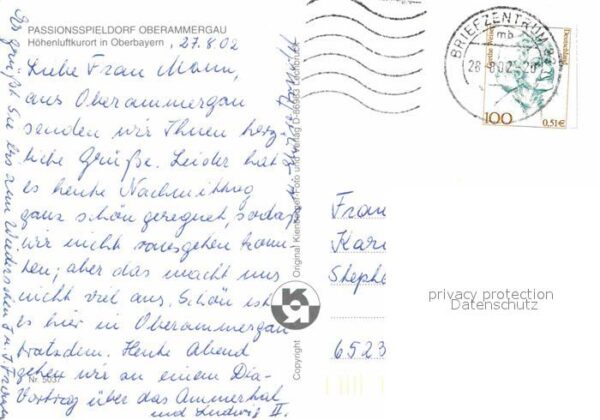 PASSIONSSPIELDORF OBERAMMERGAU
Höhenluftkurort in Oberbayern
, 27.8.02
Liebe Frau Mann,
aus Oberammergau
senden wir Ihnen herz-
liche Grüße. Leider hat
es heute Nachmittag
ganz schön geregnet, sodaß
wir nicht rausgehen konn-
ten; aber das macht uns
nicht viel aus. Schön ist
es hier in Oberammergau
trotzdem. Heute Abend
gehen wir an einem Dia-
Vortrag über das Ammertal
und Ludwig II.
Nr. 5037
Es grüßt Sie bis zum Wiedersehen
Copyright
Original Foto und Verlag
BRIEFZENTRUM
mb
Deutschland
100
0,51€
Frau
Kari
Stephe
6523
privacy protection
Datenschutz